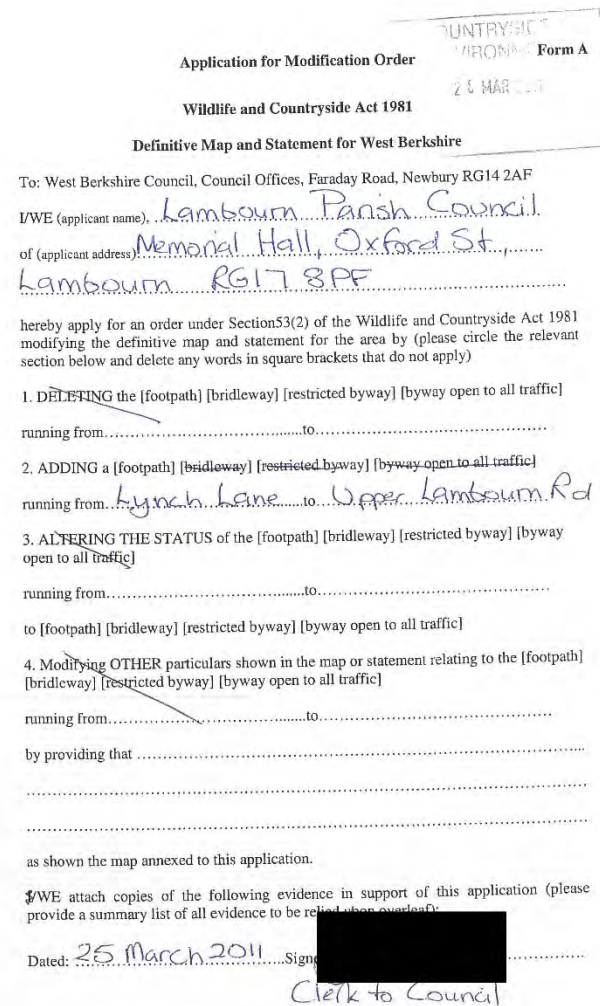 Form A
Application for Modification Order
26 MAR
Wildlife and Countryside Act 1981
Definitive Map and Statement for West Berkshire
To: West Berkshire Council, Council Offices, Faraday Road, Newbury RG14 2AF
I/WE (applicant name), Lambourn Parish Council
of (applicant address) Memorial Hall, Oxford St,
Lambourn RG17 8PF
hereby apply for an order under Section53(2) of the Wildlife and Countryside Act 1981
modifying the definitive map and statement for the area by (please circle the relevant
section below and delete any words in square brackets that do not apply)
1. DELETING the [footpath] [bridleway] [restricted byway] [byway open to all traffic]
running from..............................to..............................
2. ADDING a [footpath] [bridleway] [restricted byway] [byway open to all traffic]
running from Lynch Lane to Upper Lambourn Rd
3. ALTERING THE STATUS of the [footpath] [bridleway] [restricted byway] [byway
open to all traffic]
running from..............................to..............................
to [footpath] [bridleway] [restricted byway] [byway open to all traffic]
4. Modifying OTHER particulars shown in the map or statement relating to the [footpath]
[bridleway] [restricted byway] [byway open to all traffic]
running from..............................to..............................
by providing that ..............................
as shown the map annexed to this application.
I/WE attach copies of the following evidence in support of this application (please
provide a summary list of all evidence to be relied upon overleaf):
Dated: 25 March 2011 Signe
Clerk to Council